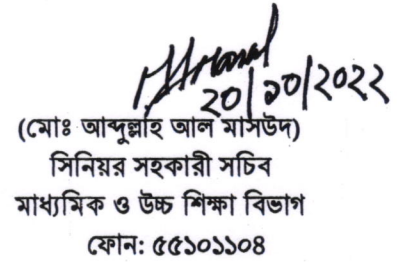 ২০/১০/২০২২
(মোঃ আব্দুল্লাহ আল মাসউদ)
সিনিয়র সহকারী সচিব
মাধ্যমিক ও উচ্চ শিক্ষা বিভাগ
ফোন: ৫৫১০১১০৪